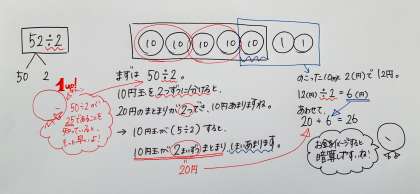 52÷2
50 2
1up!
50÷2が
25であることを
知っていると、
もっと早いよ!
10 10 10 10 10 1 1
まずは 50÷2。
10円玉を2つずつに分けると、
20円のまとまりが2つで、10円あまりますね。
→ 10円玉が(5÷2)すると、
10円玉が2まいずつまとまり、1まいあまります。
20円
のこった10円と2(円)で12円。
12(円)÷2=6(円)
あわせて、
20+6=26
お金をイメージすると
暗算しやすいね!